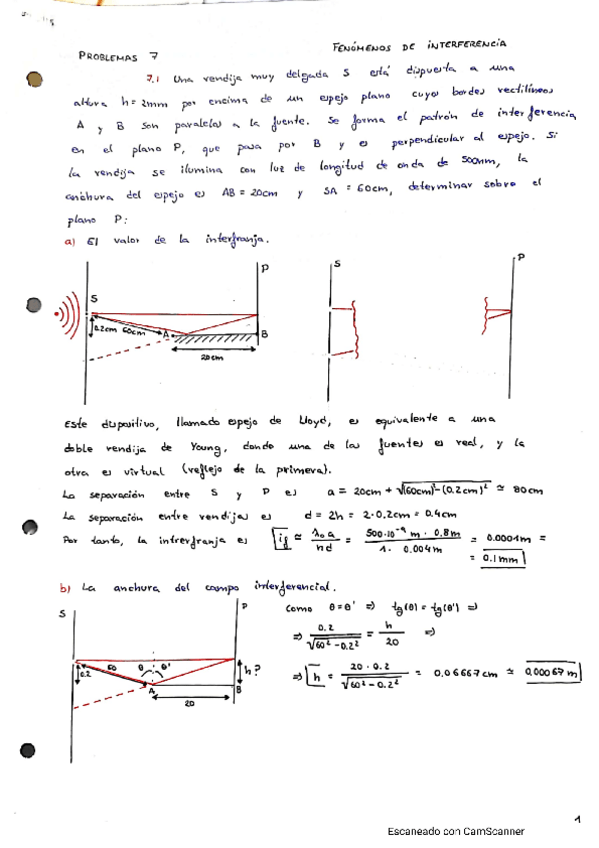 FENÓMENOS DE INTERFERENCIA
PROBLEMAS 7
7.1 Una rendija muy delgada S está dispuesta a una
altura h = 2mm por encima de un espejo plano cuyos bordes rectilíneos
A y B son paralelos a la fuente. Se forma el patrón de interferencia
en el plano P, que pasa por B y es perpendicular al espejo. Si
la rendija se ilumina con luz de longitud de onda de 500nm, la
anchura del espejo es AB = 20cm y SA = 60cm, determinar sobre el
plano P:
a) El valor de la interfranja.
S P S P
0.2cm 60cm A B
20cm
Este dispositivo, llamado espejo de Lloyd, es equivalente a una
doble rendija de Young, donde una de las fuentes es real, y la
otra es virtual (reflejo de la primera).
La separación entre S y P es a = 20cm + √(60cm)²-(0.2cm)² ≃ 80cm
La separación entre rendijas es d = 2h = 2·0.2cm = 0.4cm
Por tanto, la intrerfranja es ig ≃ λ₀a/nd = 500·10⁻⁹ m · 0.8m / 1 · 0.004m = 0.0001m =
= 0.1mm
b) La anchura del campo interferencial.
S P Como θ = θ' ⇒ tg(θ) = tg(θ') ⇒
⇒ 0.2/√60²-0.2² = h/20 ⇒
0.2 60 θ θ' h?
A B
20
⇒ h = 20·0.2/√60²-0.2² = 0.06667cm ≃ 0,00067m
1
Escaneado con CamScanner